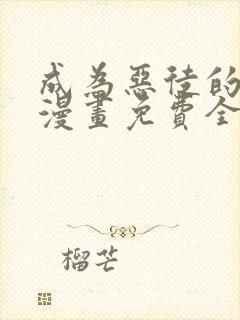 成為惡徒的
漫畫免費全
榴芒